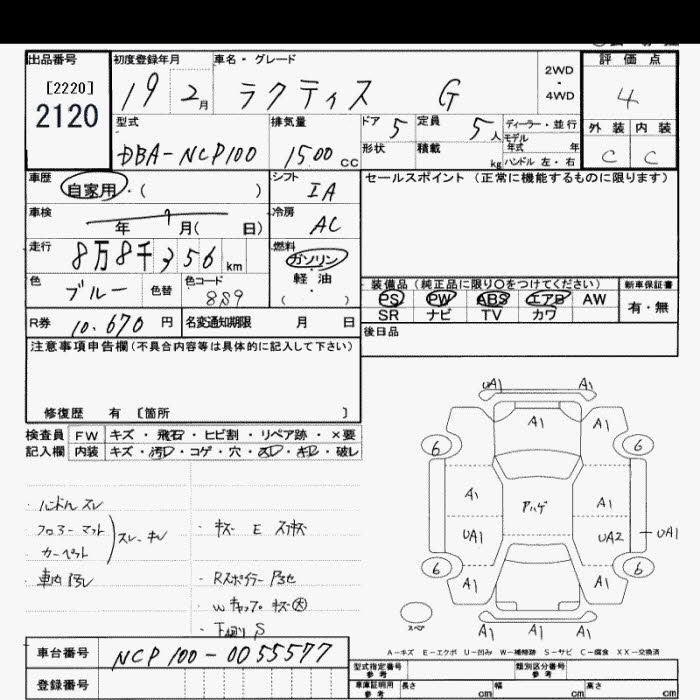 出品番号 初度登録年月 車名・グレード 評価点
[2220]
2120
19 2月 ラクティス G 2WD・4WD 4
型式 排気量 ドア 5 定員 5人 ディーラー・並行 外装 内装
モデル年式 年
DBA-NCP100 1500cc 形状 積載 kg ハンドル 左・右 C C
車歴 自家用・( ) シフト IA セールスポイント(正常に機能するものに限ります)
車検 年 月( 日) 冷房 AC
走行 8万8千356km 燃料 ガソリン・軽油・( )
色 ブルー 色替 色コード 8S9 装備品(純正品に限り○をつけてください) 新車保証書
PS PW ABS エアB AW 有・無
SR ナビ TV カワ
R券 10,670円 名変通知期限 月 日 後日品
注意事項申告欄(不具合内容等は具体的に記入して下さい)
修復歴 有 [箇所 ]
検査員 FW キズ・飛石・ヒビ割・リペア跡・×要
記入欄 内装 キズ・汚れ・コゲ・穴・スレ・キレ・破レ
・ハンドルスレ
・フロアーマット
・カーペット
スレ・キレ
・キズ E
・車内
・Rスポイラー
・Wキャップ キズ 大
・下廻り S
UA1 A1
A1 A1
6 6
A1 アハゲ A1
UA1 UA2 UA1
6 6
A1 A1
スペア
A1 A1 A1
A-キズ E-エクボ U-凹み W-補修跡 S-サビ C-腐食 XX-交換済
車台番号 NCP100-0055577
登録番号
型式指定番号 参考 類別区分番号 参考
車庫証明用 参考 長さ cm 幅 cm 高さ cm